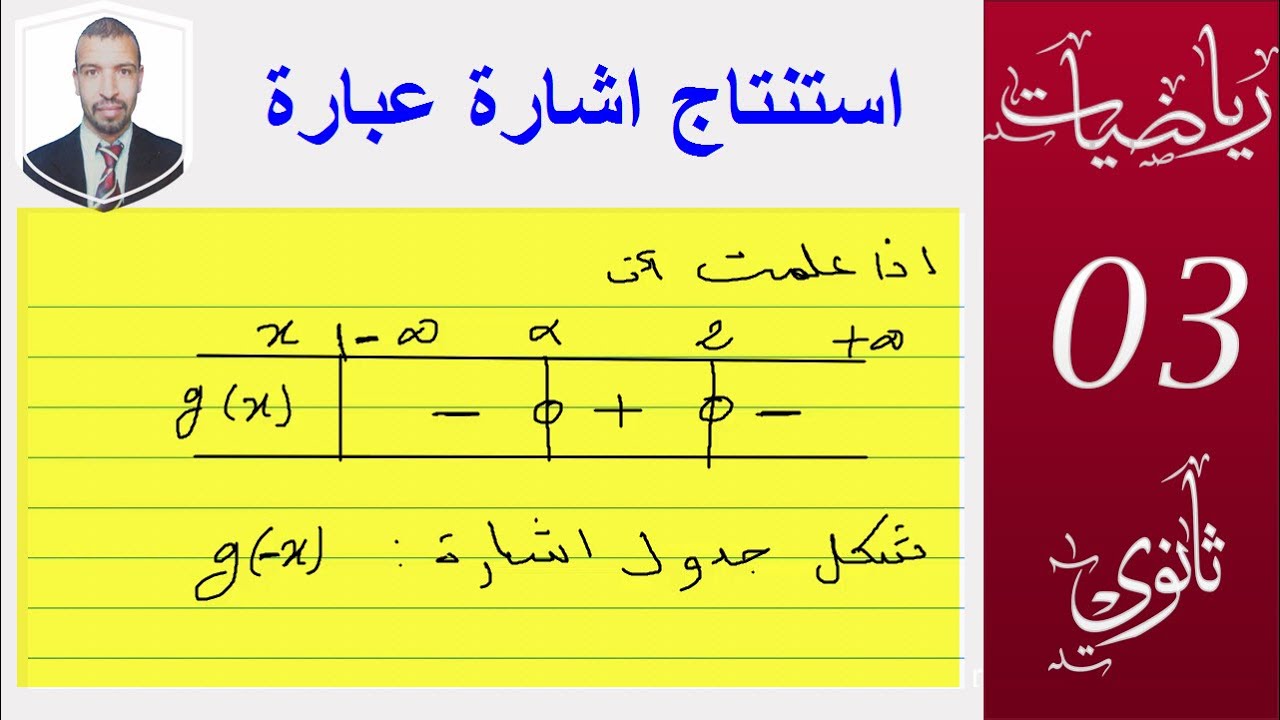 استنتاج اشارة عبارة
رياضيات
03
ثانوي
اذا علمت أن
x | -∞ α 2 +∞
g(x) | - 0 + 0 -
شكل جدول اشارة : g(-x)